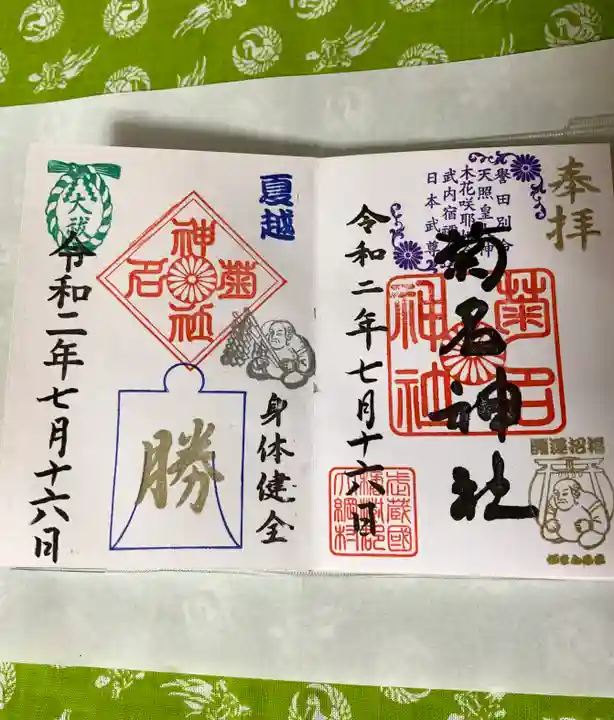 奉拝
誉田別命
天照皇大神
木花咲耶姫命
武内宿禰命
日本武尊
菊名神社
菊名神社
開運招福
令和二年七月十六日
武蔵國
橘樹郡
大綱村
夏越
大祓
菊名神社
勝
身体健全
令和二年七月十六日